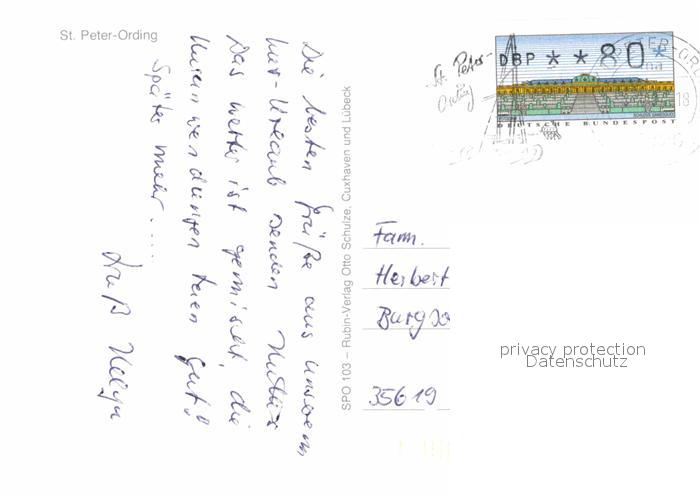 St. Peter-Ording
Die besten Grüße aus unserem
Urlaub senden
Das Wetter ist gemischt, die
tuen gut!
Später mehr....
Gruß Helga
SPO 103 – Rubin-Verlag Otto Schulze, Cuxhaven und Lübeck
St. Peter-
Ording
DBP * * 80 *
DEUTSCHE BUNDESPOST
18
Fam.
Herbert
35619
privacy protection
Datenschutz